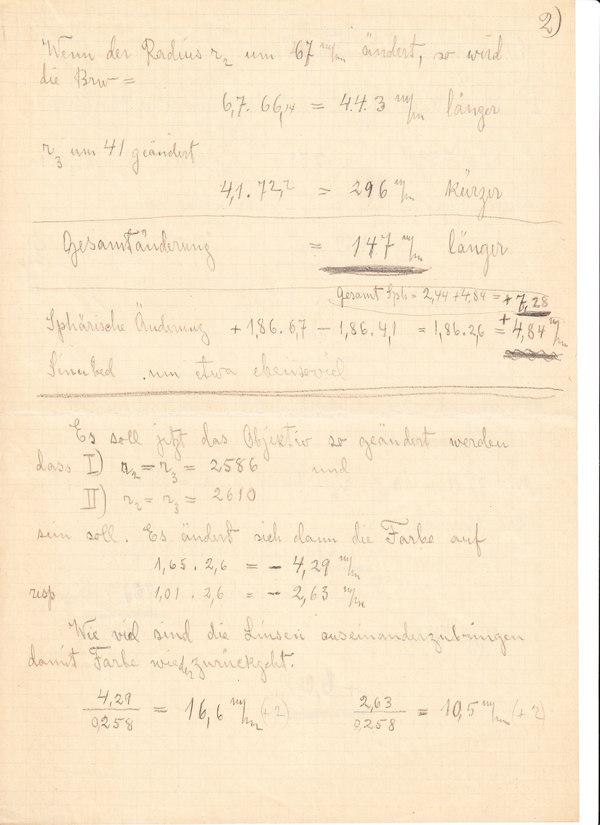 2)
Wenn der Radius r2 um 67 m/m ändert, so wird
die Brw =
6,7. 66,14 = 443 m/m länger
r3 um 41 geändert
4,1. 72,2 = 296 m/m kürzer
Gesamtänderung = 147 m/m länger
Gesamt Sph = 2,44 + 4,84 = + 7,28
Sphärische Änderung + 1,86. 6,7 - 1,86. 4,1 = 1,86. 2,6 = + 4,84 m/m
Sinusbed um etwa ebensoviel
Es soll jetzt das Objektiv so geändert werden
dass I) r2 = r3 = 2586 und
II) r2 = r3 = 2610
sein soll. Es ändert sich dann die Farbe auf
1,65. 2,6 = - 4,29 m/m
resp 1,01. 2,6 = - 2,63 m/m
Wie viel sind die Linsen auseinanderzubringen
damit Farbe wieder zurückgeht.
4,29 / 0,258 = 16,6 m/m (+2) 2,63 / 0,258 = 10,5 m/m (+2)